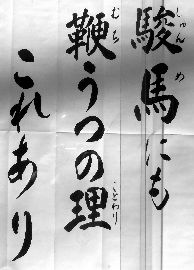 駿馬にも
鞭うつの理
これあり
しゅんめ
むち
ことわり